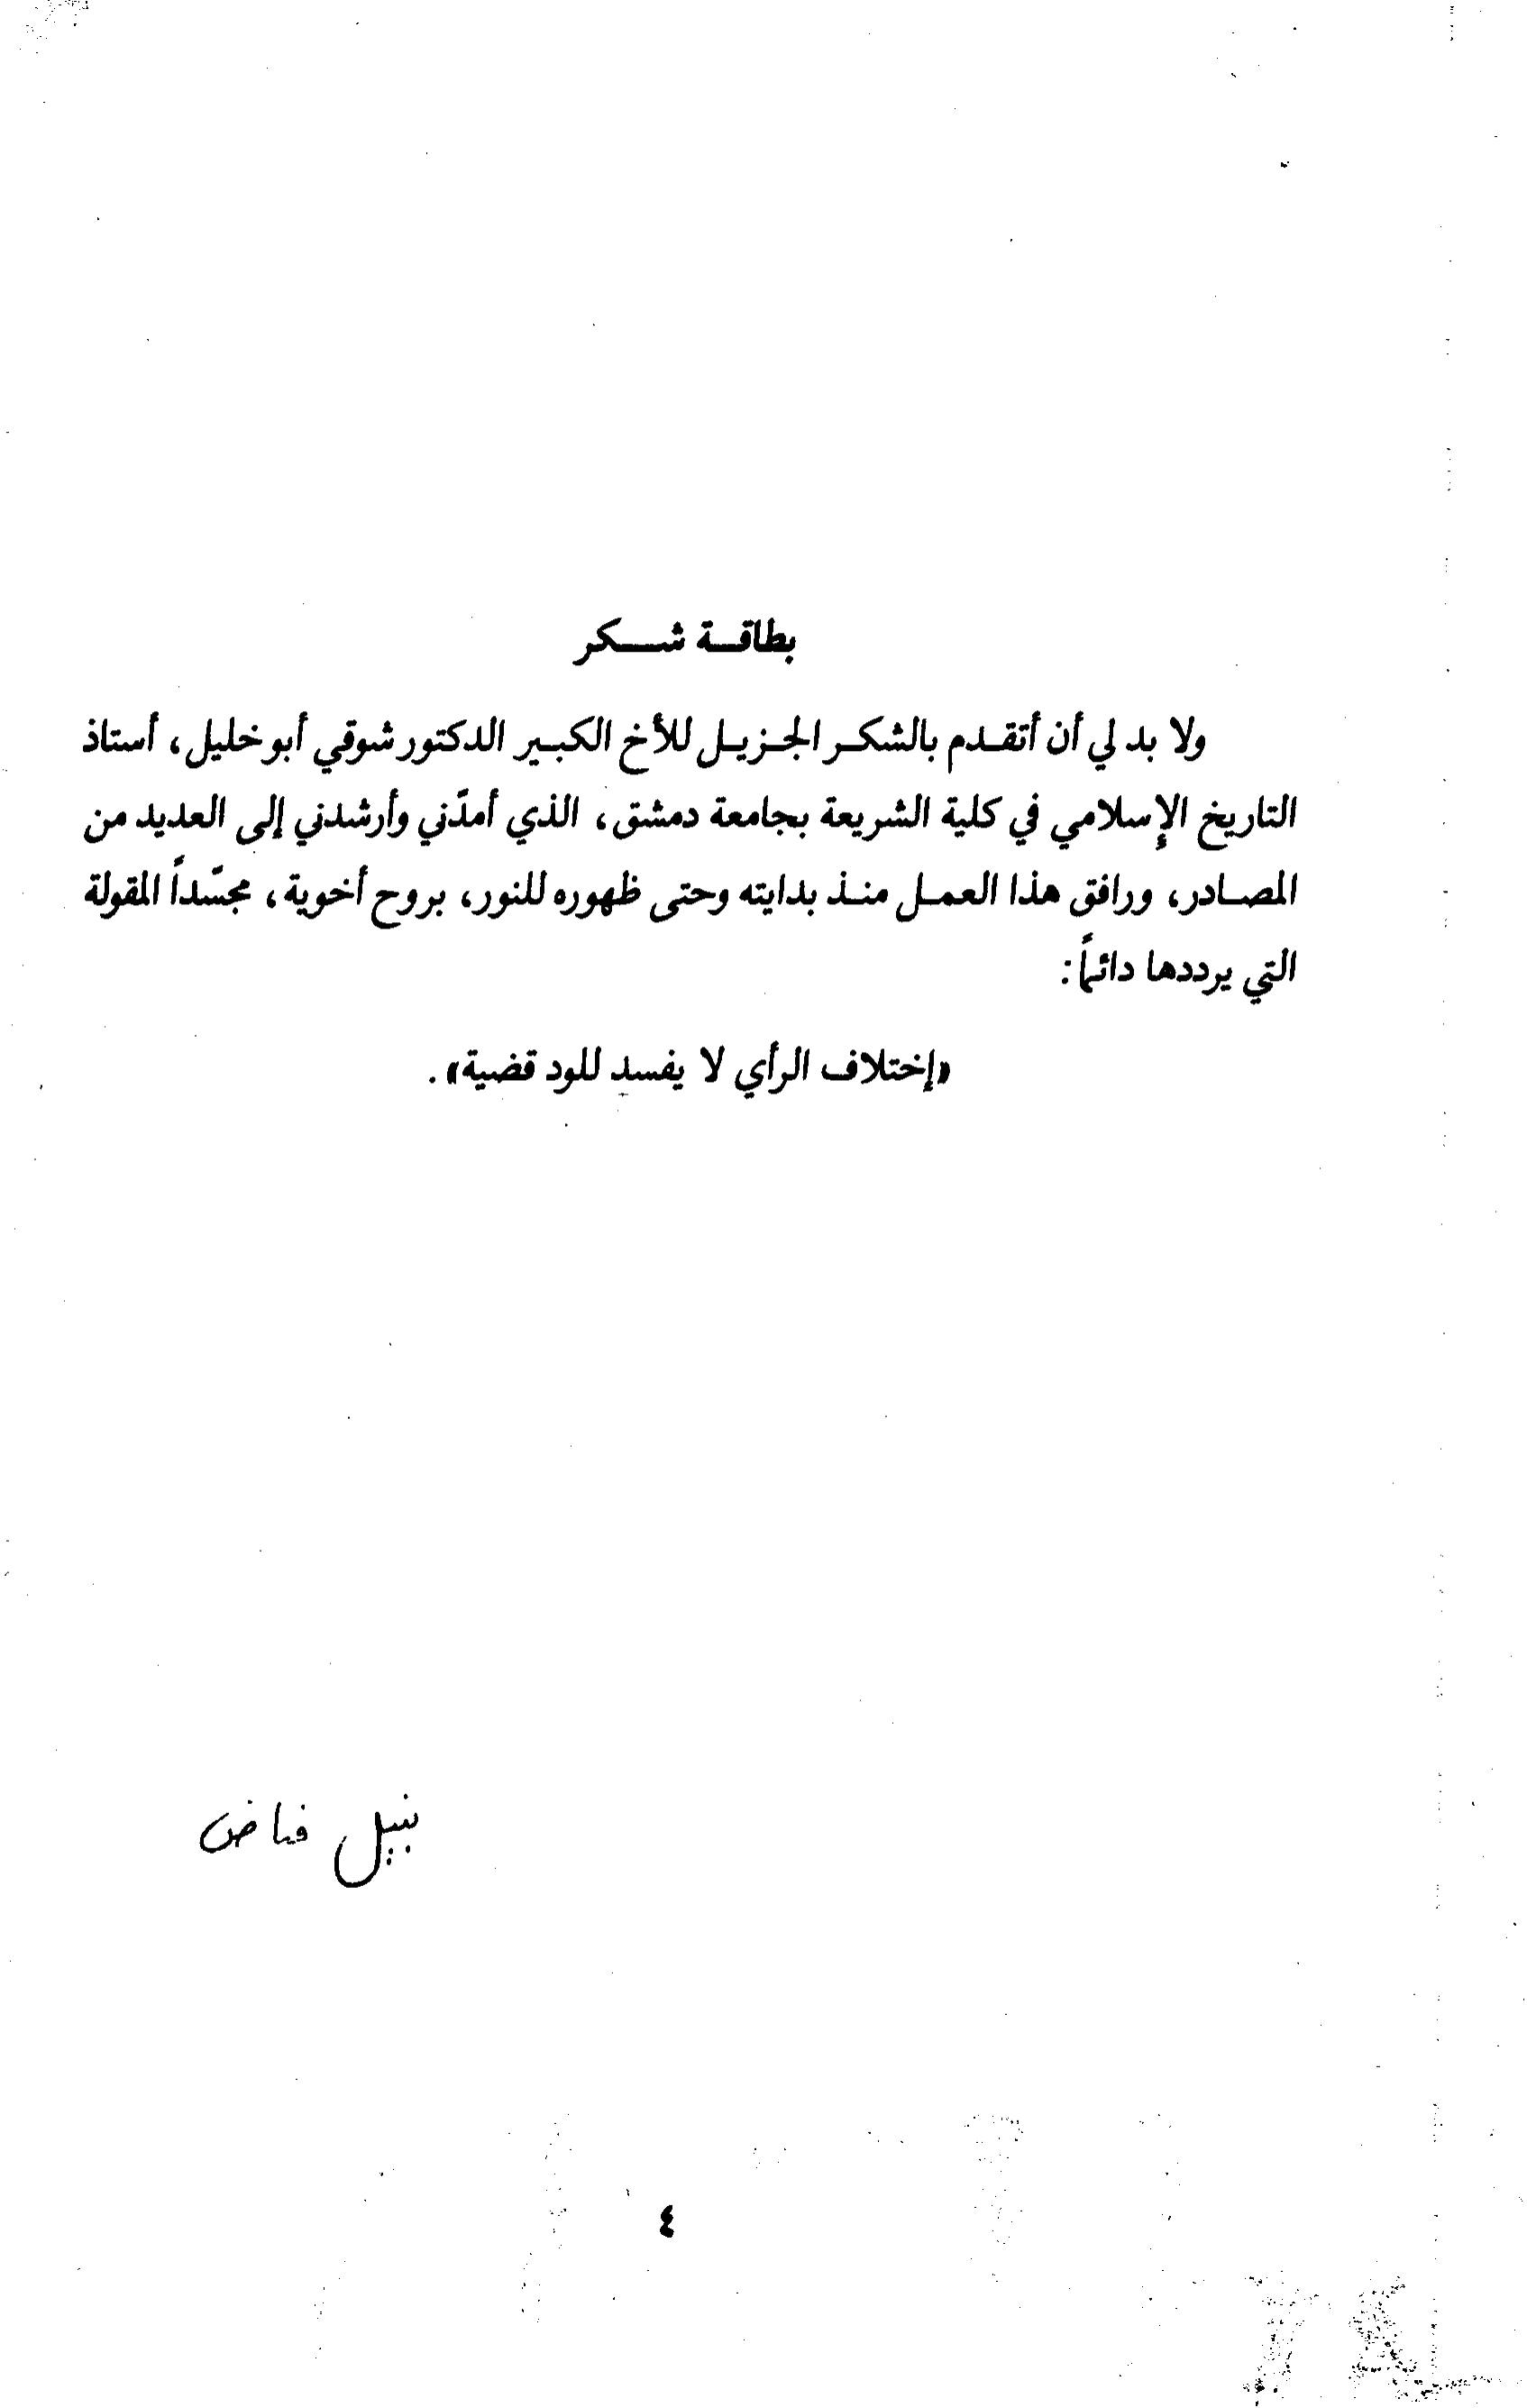 بطاقة شكر
ولا بد لي أن أتقدم بالشكر الجزيل للأخ الكبير الدكتور شوقي أبو خليل، أستاذ
التاريخ الإسلامي في كلية الشريعة بجامعة دمشق، الذي أمدّني وأرشدني إلى العديد من
المصادر، ورافق هذا العمل منذ بدايته وحتى ظهوره للنور، بروح أخوية، مجسّداً المقولة
التي يرددها دائماً:
«إختلاف الرأي لا يفسد للود قضية».
نبيل فياض
٤